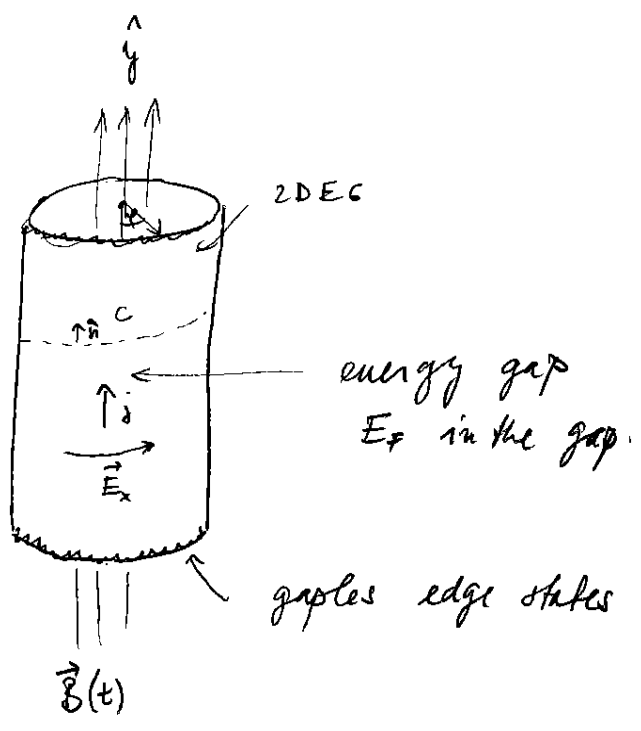 ŷ
2DEG
C
n̂
energy gap
E_F in the gap.
j
E⃗ₓ
gaples edge states
B⃗(t)